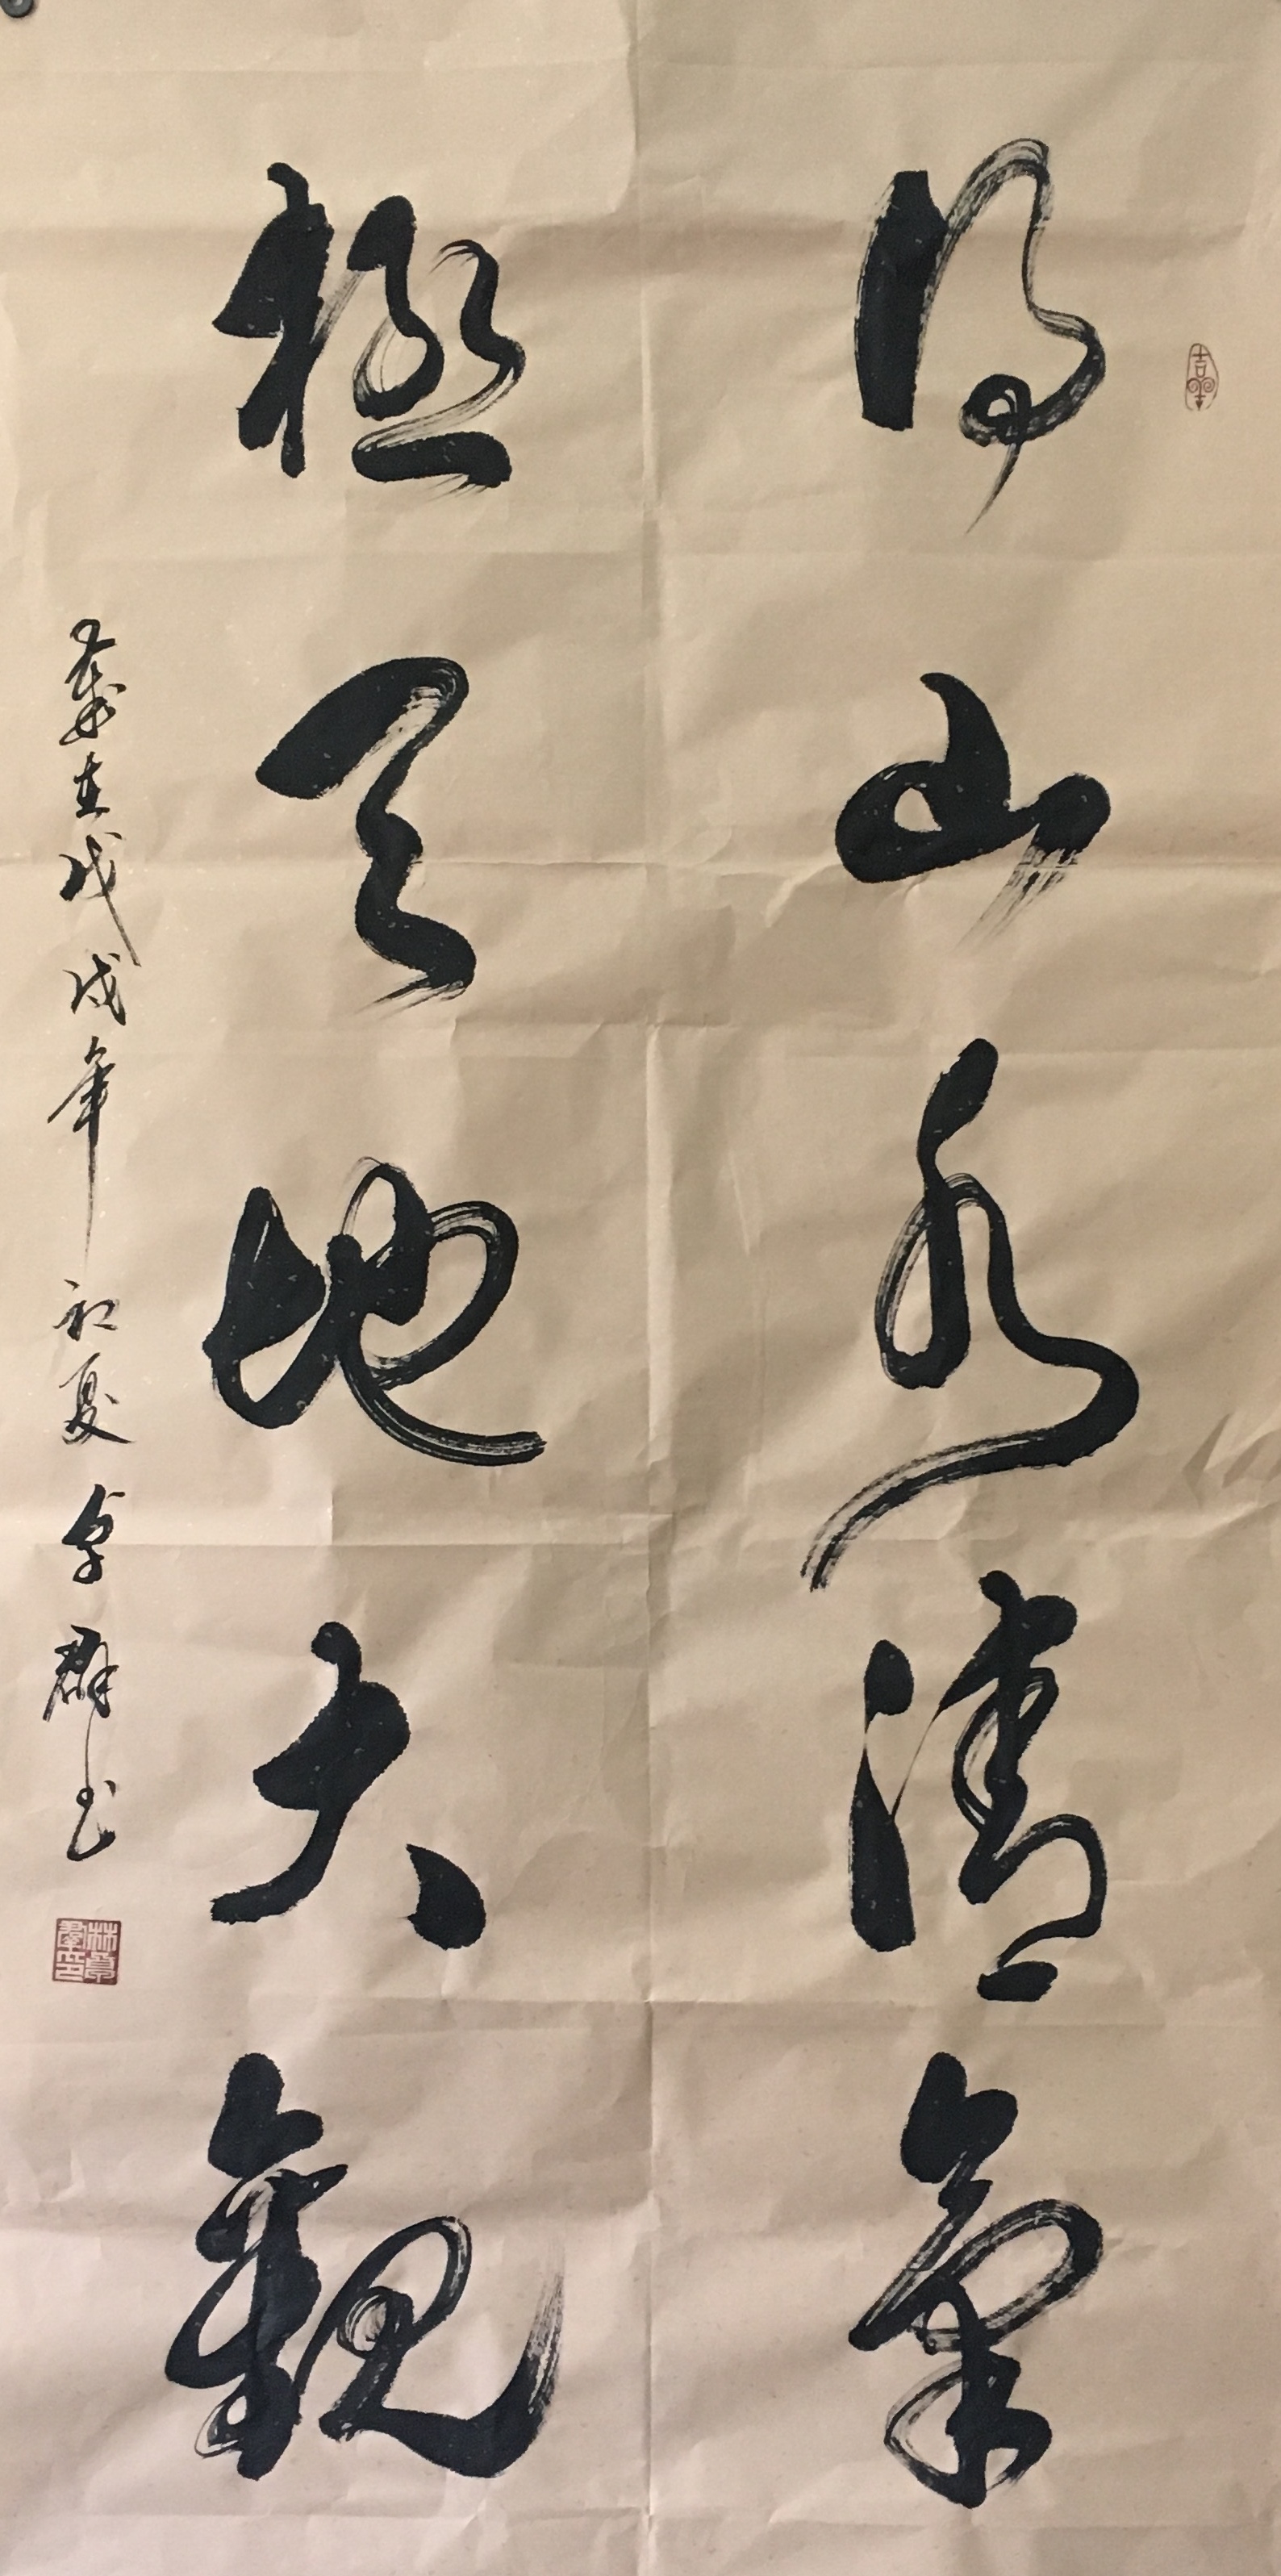 得山水清氣
極天地大觀
歲在戊戌年初夏卓群書